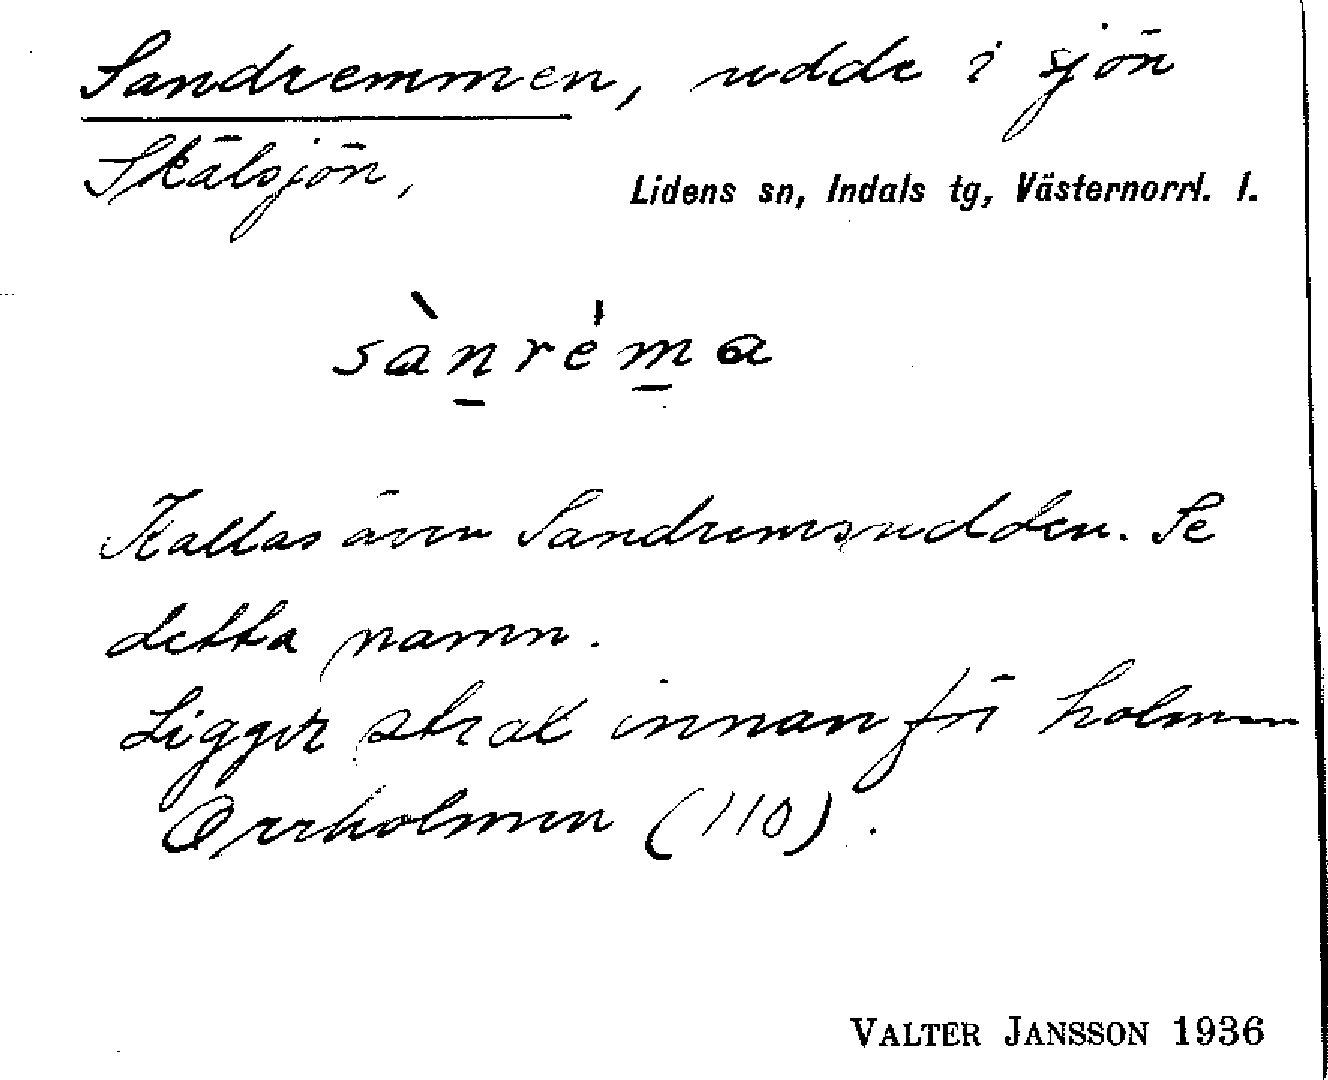 Sandremmen, udde i sjön
Skälsjön,
Lidens sn, Indals tg, Västernorrl. l.
sànréma
Kallas även Sandremsudden. Se
detta namn.
Ligger strax innanför holmen
Orrholmen (110).
VALTER JANSSON 1936